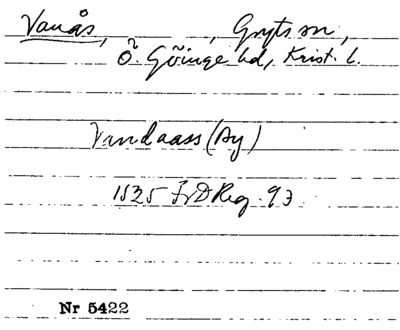 Vanås, , Gryts sn,
Ö. Göinge hd, Krist. l.
Vandaass (Ay)
1525 FrDReg. 93
Nr 5422